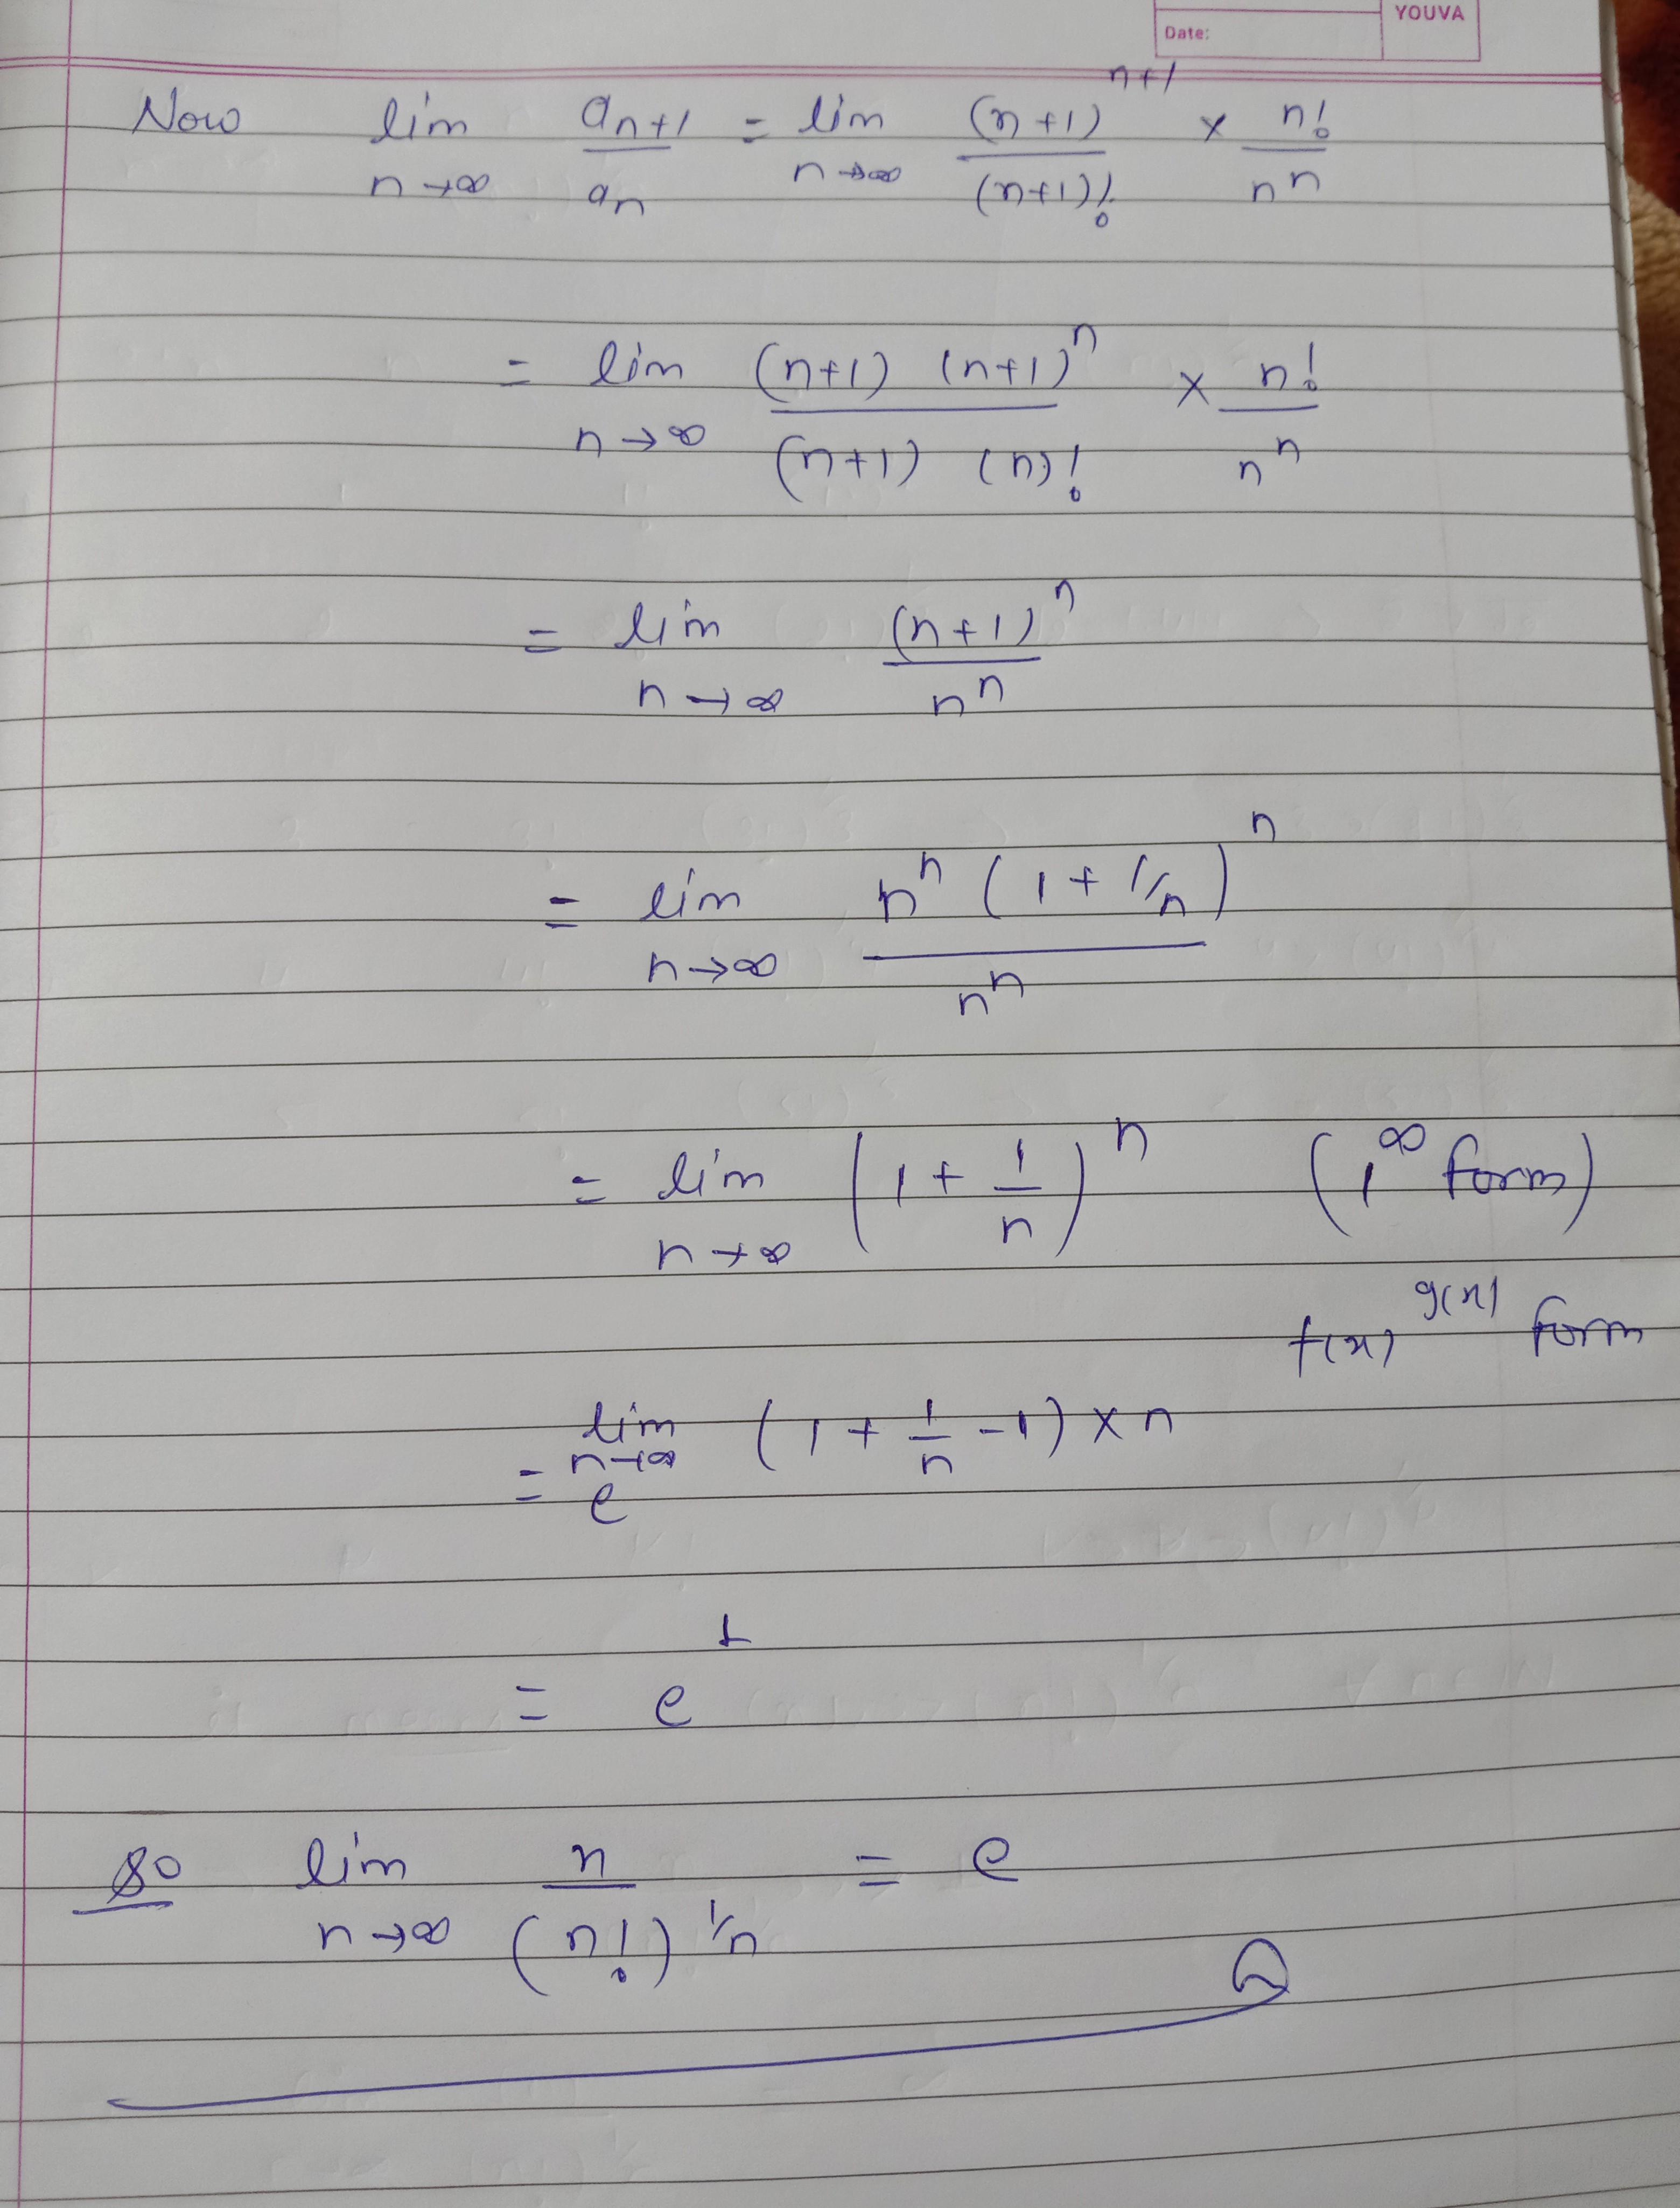 YOUVA
Date:
Now lim n→∞ aₙ₊₁/aₙ = lim n→∞ (n+1)ⁿ⁺¹/(n+1)! × n!/nⁿ
= lim n→∞ (n+1) (n+1)ⁿ/(n+1) (n)! × n!/nⁿ
= lim n→∞ (n+1)ⁿ/nⁿ
= lim n→∞ nⁿ (1 + 1/n)ⁿ/nⁿ
= lim n→∞ (1 + 1/n)ⁿ (1^∞ form)
f(x)^g(x) form
= e^(lim n→∞ (1 + 1/n - 1) × n)
= e¹
So lim n→∞ n/(n!)^1/n = e